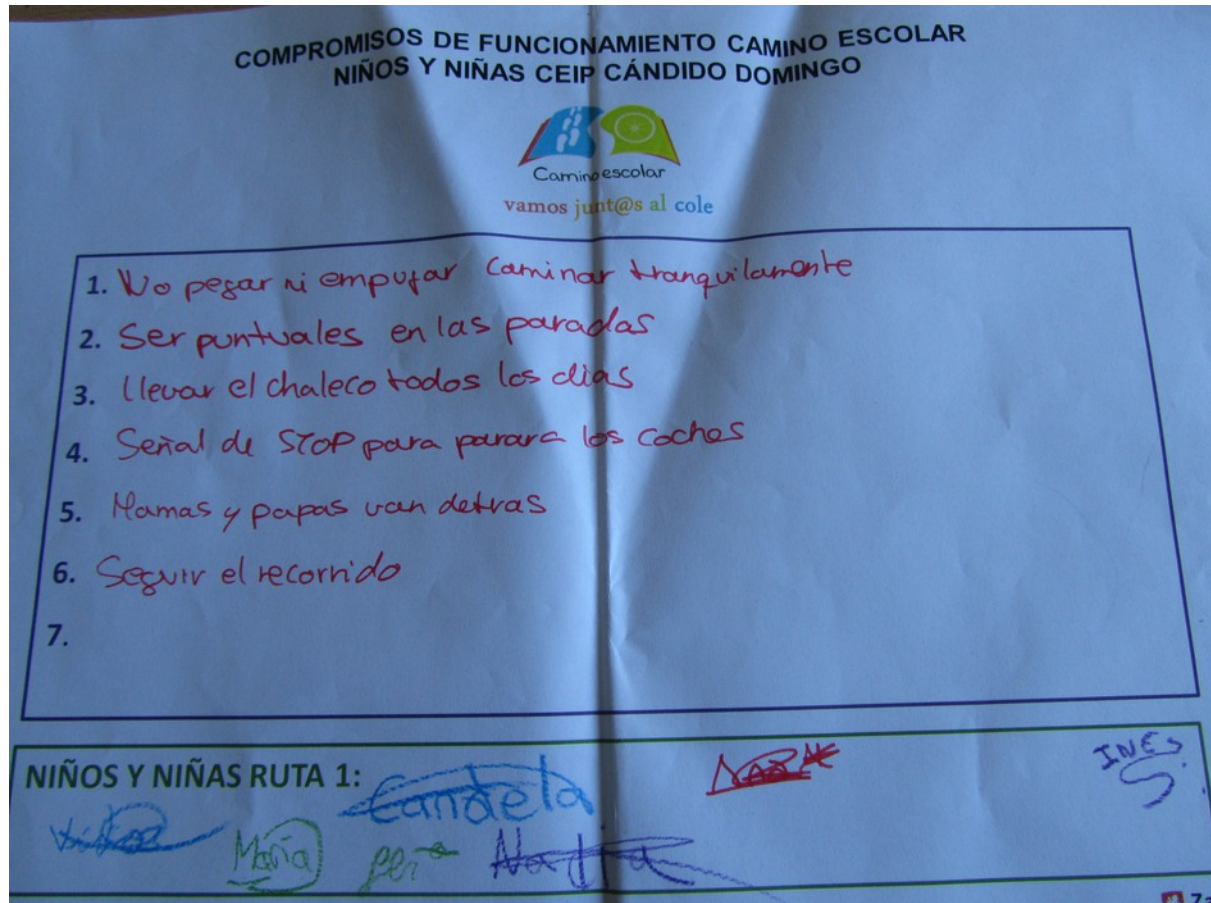 COMPROMISOS DE FUNCIONAMIENTO CAMINO ESCOLAR
NIÑOS Y NIÑAS CEIP CÁNDIDO DOMINGO
Camino escolar
vamos junt@s al cole
1. No pegar ni empujar Caminar tranquilamente
2. Ser puntuales en las paradas
3. Llevar el chaleco todos los dias
4. Señal de STOP para parar a los coches
5. Mamas y papas van detras
6. Seguir el recorrido
7.
NIÑOS Y NIÑAS RUTA 1:
Candela
INES
Nadia